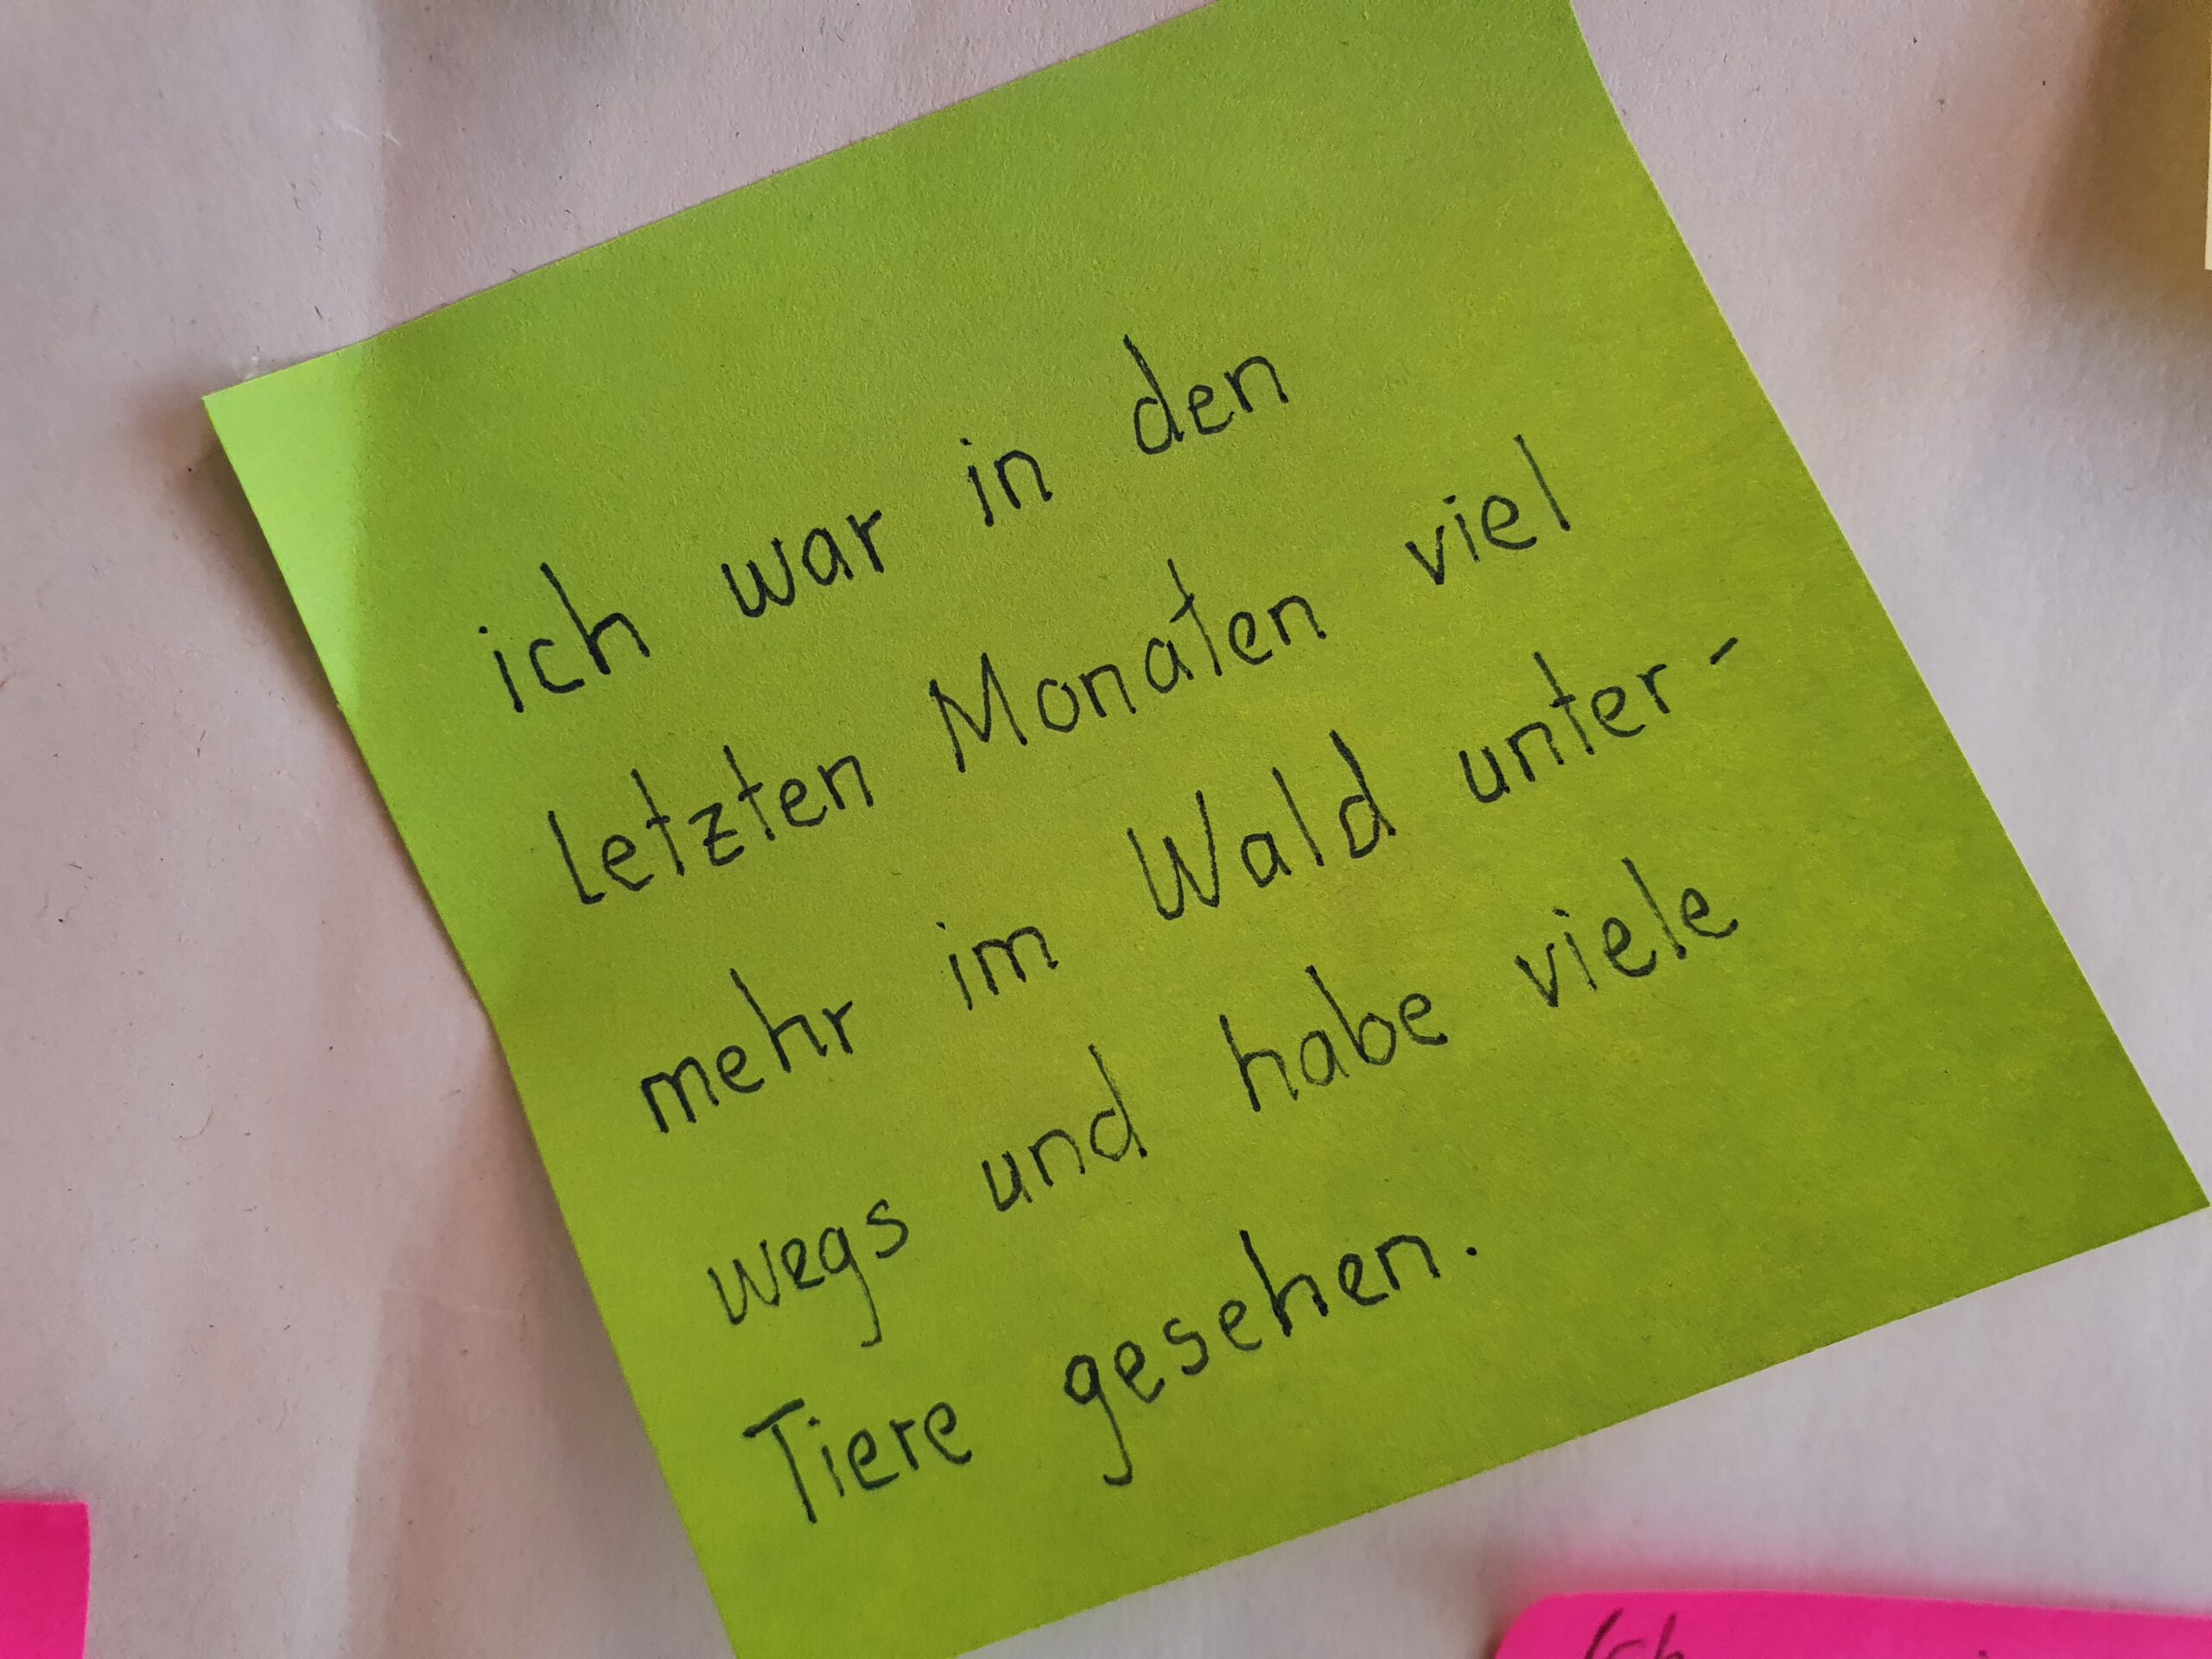 ich war in den
letzten Monaten viel
mehr im Wald unter-
wegs und habe viele
Tiere gesehen.
Ich